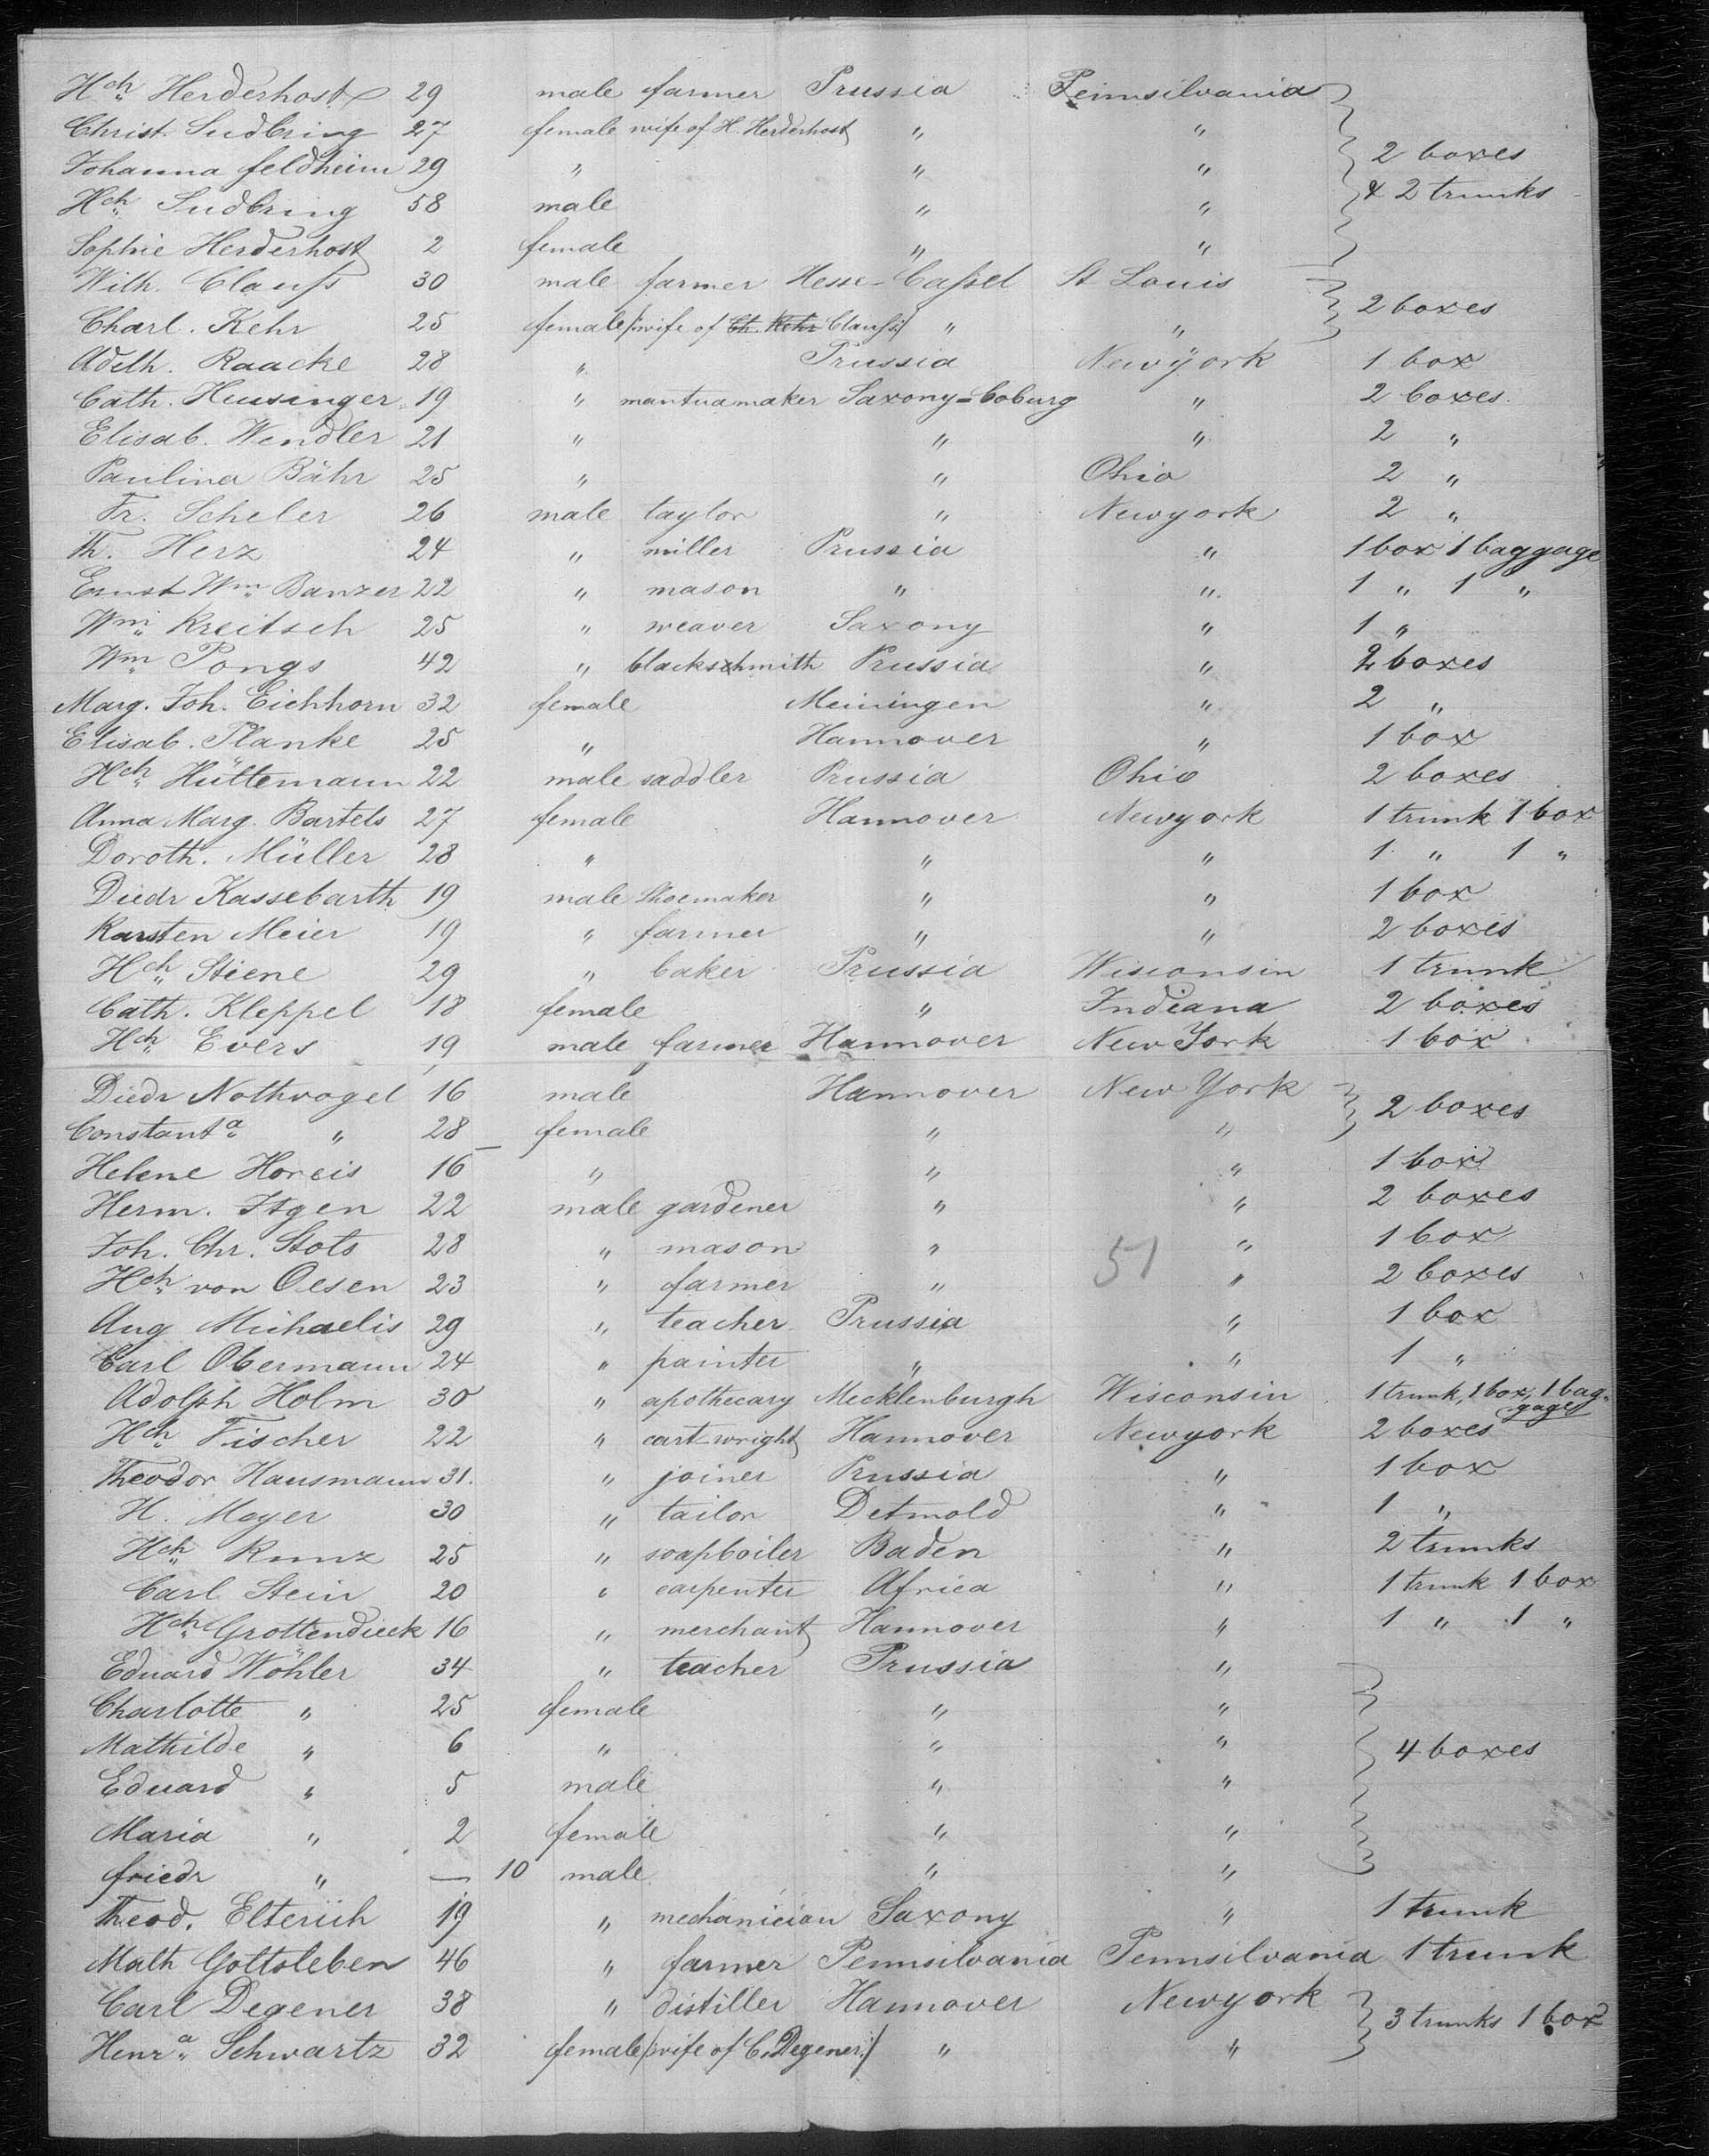 Hch. Herderhost 29 male farmer Prussia Pennsilvania
Christ. Sudbring 27 female wife of H. Herderhost " "
Johanna Feldheim 29 " " " 2 boxes
Hch. Sudbring 58 male " " & 2 trunks
Sophie Herderhost 2 female " "
Wilh. Clauss 30 male farmer Hesse-Cassel St Louis
Charl. Kehr 25 female /:wife of Ch. Kehr Clauss:/ " " 2 boxes
Adelh. Raacke 28 " Prussia Newyork 1 box
Cath. Heusinger 19 " mantuamaker Saxony=Coburg " 2 boxes
Elisab. Wendler 21 " " " 2 "
Paulina Bähr 25 " " Ohio 2 "
Fr. Scheler 26 male taylor " Newyork 2 "
Th. Herz 24 " miller Prussia " 1 box 1 baggage
Ernst Wm. Banzer 22 " mason " " 1 " 1 "
Wm. Kreitsch 25 " weaver Saxony " 1 "
Wm. Pongs 42 " blackschmith Prussia " 2 boxes
Marg. Joh. Eichhorn 32 female Meiningen " 2 "
Elisab. Planke 25 " Hannover " 1 box
Hch. Hüttemann 22 male saddler Prussia Ohio 2 boxes
Anna Marg. Bartels 27 female Hannover Newyork 1 trunk 1 box
Doroth. Müller 28 " " " 1 " 1 "
Diedr Kassebarth 19 male Shoemaker " " 1 box
Karsten Meier 19 " farmer " " 2 boxes
Hch. Stiene 29 " baker Prussia Wisconsin 1 trunk
Cath. Kleppel 18 female " Indiana 2 boxes
Hch. Evers 19 male farmer Hannover New York 1 box
Diedr Nothvogel 16 male Hannover New York 2 boxes
Constanta. " 28 female " "
Helene Horeis 16 " " " 1 box
Herm. Itgen 22 male gardener " " 2 boxes
Joh. Chr. Stots 28 " mason " " 1 box
51
Hch. von Oesen 23 " farmer " " 2 boxes
Aug Michaelis 29 " teacher Prussia " 1 box
Carl Obermann 24 " painter " " 1 "
Adolph Holm 30 " apothecary Mecklenburgh Wisconsin 1 trunk, 1 box, 1 bag-
gage
Hch. Fischer 22 " cart-wright Hannover Newyork 2 boxes
Theodor Hausmann 31. " joiner Prussia " 1 box
H. Meyer 30 " tailor Detmold " 1 "
Hch. Kunz 25 " soapboiler Baden " 2 trunks
Carl Stein 20 " carpenter Africa " 1 trunk 1 box
Hch. Grottendieck 16 " merchant Hannover " 1 " 1 "
Eduard Wöhler 34 " teacher Prussia "
Charlotte " 25 female " "
Mathilde " 6 " " " 4 boxes
Eduard " 5 male " "
Maria " 2 female " "
Friedr " — 10 male " "
Theod. Elterich 19 " mechanician Saxony " 1 trunk
Math Gottsleben 46 " farmer Pennsilvania Pennsilvania 1 trunk
Carl Degener 38 " distiller Hannover Newyork 3 trunks 1 box
Henra. Schwartz 32 female /:wife of C. Degener:/ " "